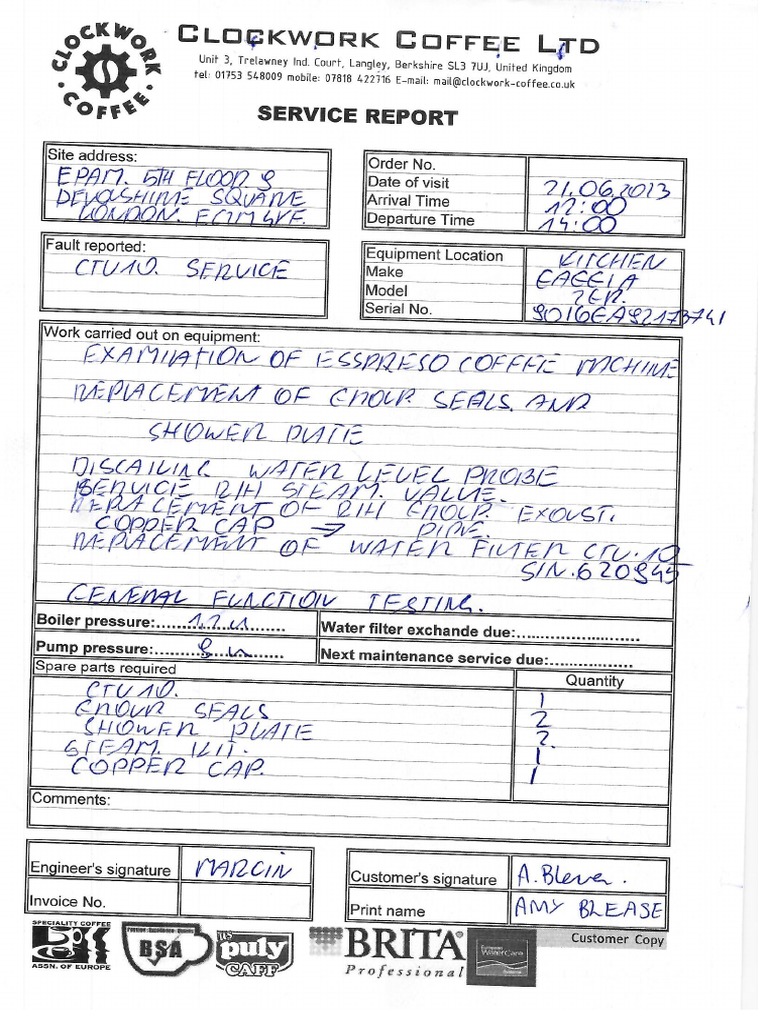 CLOCKWORK COFFEE
CLOCKWORK COFFEE LTD
Unit 3, Trelawney Ind. Court, Langley, Berkshire SL3 7UJ, United Kingdom
tel: 01753 548009 mobile: 07818 422716 E-mail: mail@clockwork-coffee.co.uk
SERVICE REPORT
Site address:
EPAM. 5TH FLOOR 9
DEVOLSHIRE SQUARE
LONDON.
Order No.
Date of visit 21.06.2023
Arrival Time 12:00
Departure Time 14:00
Fault reported:
CTU10. SERVICE
Equipment Location KITCHEN
Make GAGGIA
Model 2GR.
Serial No.
Work carried out on equipment:
EXAMINATION OF ESSPRESO COFFEE MACHINE
REPLACEMENT OF GROUP. SEALS. AND
SHOWER PLATE
DISCAILING WATER LEVEL PROBE
SERVICE R/H STEAM. VALVE.
REPLACEMENT OF R/H GROUP. EXOUST.
COPPER CAP → PIPE.
REPLACEMENT OF WATER FILTER CTU.10
S/N.620945
GENERAL FUNCTION TESTING.
Boiler pressure:
Water filter exchande due:
Pump pressure: 9
Next maintenance service due:
Spare parts required Quantity
CTU10. 1
GROUP SEALS 2
SHOWER PLATE 2.
STEAM. KIT. 1
COPPER CAP. 1
Comments:
Engineer's signature MARCIN
Invoice No.
Customer's signature
Print name AMY BLEASE
SPECIALITY COFFEE
ASSN. OF EUROPE
BSA
puly
CAFF
BRITA®
Professional
European
WaterCare
Customer Copy